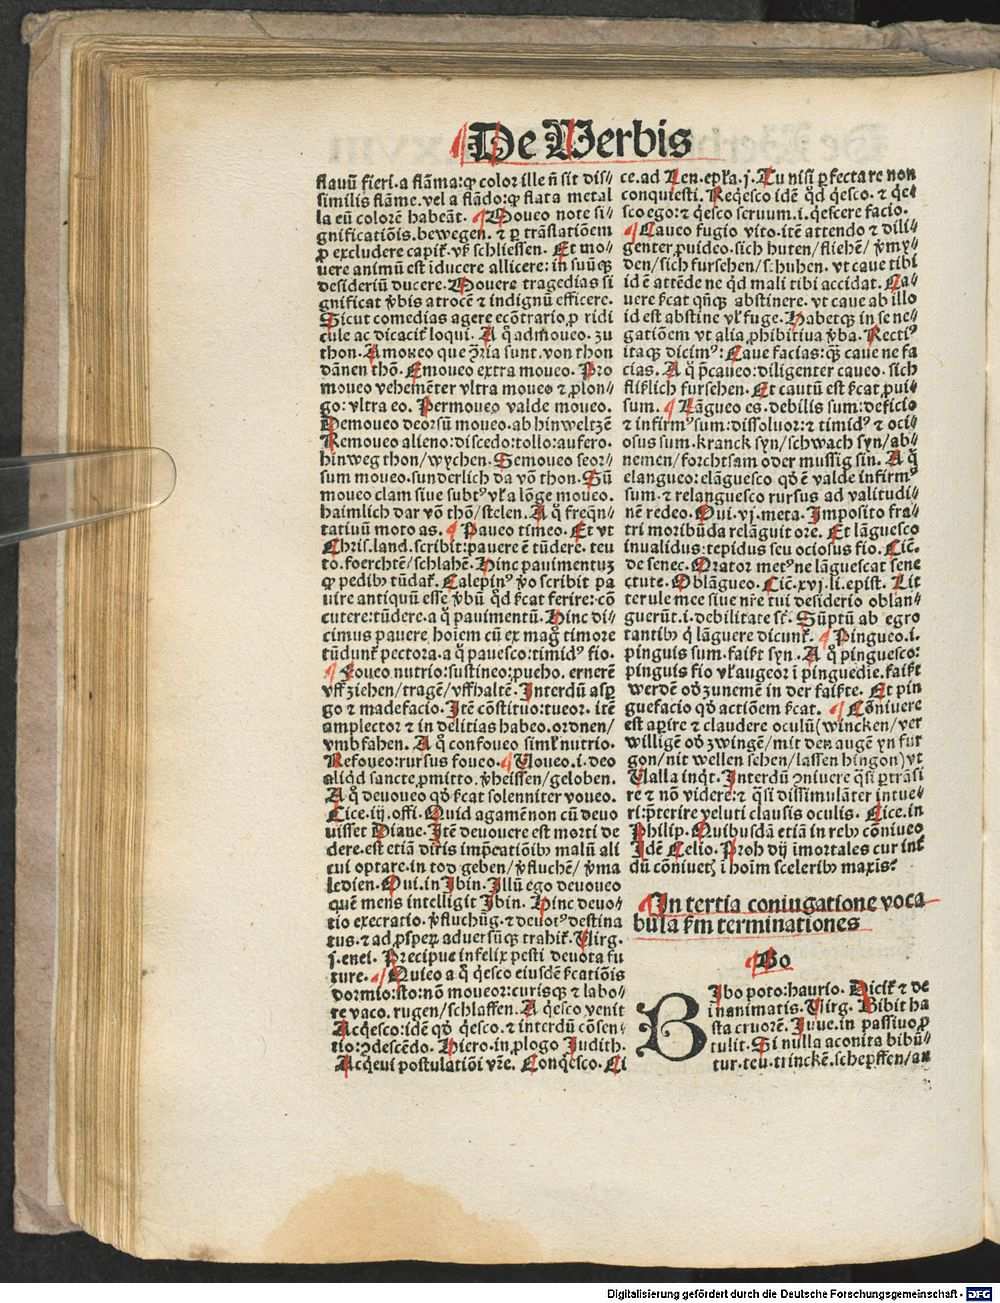 ¶ De Verbis
flauū fieri. a flāma: qꝫ color ille n̄ sit dis⸗
similis flāme. vel a flādo: qꝫ flata metal
la eū colorē habeāt. ¶ Moueo note si⸗
gnificatiōis. bewegen. ⁊ ꝑ trāslatiōem
ꝓ excludere capit̄. vl̄ schliessen. Et mo⸗
uere animū est īducere allicere: in suūqꝫ
desideriū ducere. Mouere tragedias si
gnificat ꝟbis atrocē ⁊ indignū efficere.
Sicut comedias agere ecōtrario ꝓ ridi
cule ac dicacit̄ loqui. A q̄ admoueo. zu
thon. Amoueo que ꝓ̄ria sunt. von thon
dānen thō. Emoueo extra moueo. Pro
moueo vehemēter vltra moueo ⁊ plon⸗
go: vltra eo. Permoueo valde moueo.
Demoueo deorsū moueo. ab hin weltzē
Remoueo alieno: discedo: tollo: aufero.
hinweg thon/ wychen. Semoueo seor⸗
sum moueo. sunderlich da vō thon. Sū
moueo clam siue subtꝰ vl̄ a lōge moueo.
haimlich dar vō thō/ stelen. A q̄ freq̄n⸗
tatiuū moto as. ¶ Paueo timeo. Et vt
Chris. land. scribit: pauere ē tūdere. teu
to. foerchtē/ schlahē. Hinc pauimentuꝫ
qꝫ pedibꝰ tūdat̄. Calepinꝰ ꝟo scribit pa
uire antiquū esse ꝟbū q̄d st̄cat ferire: cō
cutere: tūdere. a q̄ pauimentū. Hinc di⸗
cimus pauere hoīem cū ex maḡ timore
tūdunt̄ pectora. a q̄ pauesco: timidꝰ fio.
¶ Foueo nutrio: sustineo: pueho. ernerē
vff ziehen/ tragē/ vffhaltē. Interdū asꝑ
go ⁊ madefacio. Itē cōstituo: tueor. itē
amplector ⁊ in delitias habeo. ordnen/
vmbfahen. A q̄ confoueo siml̄ nutrio.
Refoueo: rursus foueo. ¶ Voueo. i. deo
aliq̄d sancte ꝓmitto. ꝟheissen/ geloben.
A q̄ deuoueo qd̄ st̄cat solenniter voueo.
Cice. iij. offi. Quid agamēnon cū deuo
uisset Diane. Itē deuouere est morti de
dere. est etiā diris imꝓcatiōibꝰ malū ali
cui optare. in tod geben/ ꝟfluchē/ ꝟma
ledien. Oui. in Ibin. Illū ego deuoueo
quē mens intelligit Ibin. Hinc deuo⸗
tio execratio. ꝟfluchūg. ⁊ deuotꝰ destina
tus. ⁊ ad ꝓsperꝫ aduersūqꝫ trahit̄. Virg.
j. enei. Precipue infelix pesti deuota fu
ture. ¶ Quieo a q̄ q̄esco eiusdē st̄catiōis
dormio: sto: nō moueor: curisqꝫ ⁊ labo⸗
re vaco. rugen/ schlaffen. A q̄esco venit
Acq̄esco: idē qd̄ q̄esco. ⁊ interdū cōsen⸗
tio: ꝯdescēdo. Hiero. in ꝓlogo Iudith.
Acq̄eui postulatiōi vr̄e. Conq̄esco. Ci
ce. ad Len. epl̄a. j. Tu nisi ꝑfecta re non
conquiesti. Req̄esco idē qd̄ q̄esco. ⁊ q̄e⸗
sco ego: ⁊ q̄esco seruum. i. q̄escere facio.
¶ Caueo fugio vito. itē attendo ⁊ dili⸗
genter ꝓuideo. sich huten/ fliehē/ ꝟmy⸗
den/ sich fursehen/ s. huhen. vt caue tibi
id ē attēde ne qd̄ mali tibi accidat. Ca⸗
uere st̄cat qn̄qꝫ abstinere. vt caue ab illo
id est abstine vl̄ fuge. Habetqꝫ in se ne⸗
gatiōem vt alia ꝓhibitiua ꝟba. Rectiꝰ
itaqꝫ dicimꝰ: Caue facias: qꝫ̄ caue ne fa
cias. A q̄ p̄caueo: diligenter caueo. sich
fliſklich fursehen. Et cautū est st̄cat ꝓui⸗
sum. ¶ Lāgueo es. debilis sum: deficio
⁊ infirmꝰ sum: dissoluor: ⁊ timidꝰ ⁊ oci⸗
osus sum. kranck syn/ schwach syn/ ab⸗
nemen/ forchtsam oder mussig sin. A q̄
elangueo: elāguesco qd̄ ē valde infirmꝰ
sum. ⁊ relanguesco rursus ad valitudi⸗
nē redeo. Oui. vj. meta. Imposito fra⸗
tri moribūda relāguit ore. Et lāguesco
inualidus: tepidus seu ociosus fio. Cic̄.
de senec. Orator metꝰ ne lāguescat sene
ctute. Oblāgueo. Cic̄. xvj. li. epist. Lit
terule mee siue nr̄e tui desiderio oblan⸗
guerūt. i. debilitate st̄. Sūptū ab egro
tantibꝰ q̄ lāguere dicunt̄. ¶ Pingueo. i.
pinguis sum. faißt syn. A q̄ pinguesco:
pinguis fio vl̄ augeor ī pinguedie. faißt
werdē od̄ zunemē in der faißte. Et pin
guefacio qd̄ actiōem st̄cat. ¶ Cōniuere
est aꝑire ⁊ claudere oculū (wincken/ ver
willigē od̄ zwingē/ mit den augē yn fur
gon/ nit wellen sehen/ lassen hingon) vt
Valla inq̄t. Interdū ꝯniuere q̄si ꝑtrāsi
re ⁊ nō videre: ⁊ q̄si dissimulāter intue⸗
ri: p̄terire veluti clausis oculis. Cice. in
Philip. Quibusdā etiā in rebꝰ cōniueo
Idē Celio. Proh dij īmortales cur int̄
dū cōniuetꝫ ī hoīm sceleribꝰ maxis?
¶ In tertia coniugatione voca
bula st̄m terminationes
¶ Bo
BIbo poto: haurio. Dicit̄ ⁊ de
inanimatis. Virg. Bibit ha
sta cruorē. Iuue. in passiuo ꝓ
tulit. Si nulla aconita bibū⸗
tur. teu. trinckē. scherpffen/ an
Digitalisierung gefördert durch die Deutsche Forschungsgemeinschaft - DFG